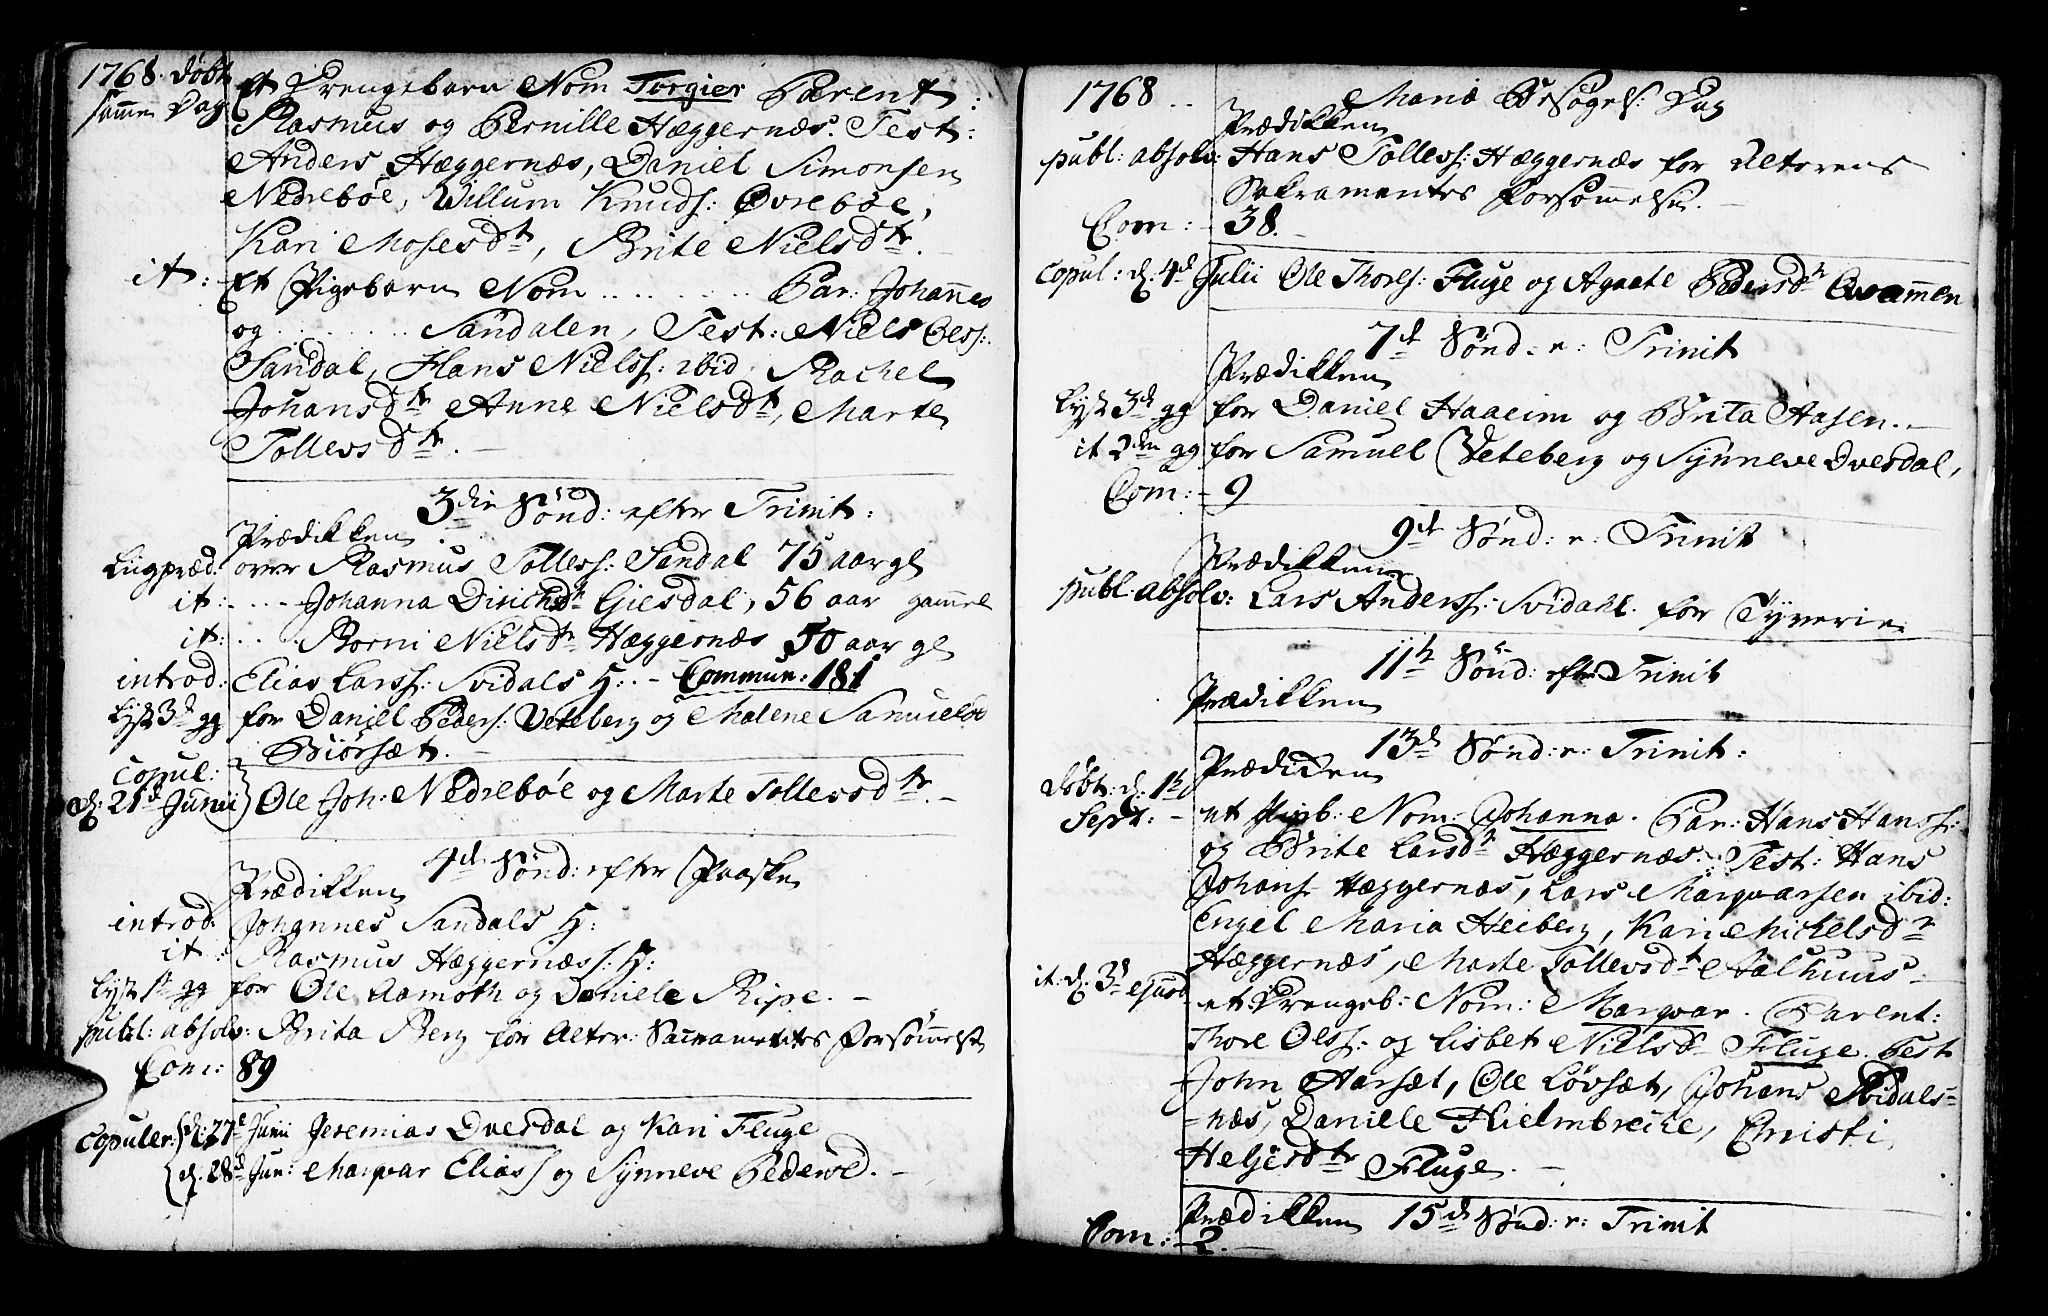 1768. Døbt Et Drengebarn Nom Torgier Parent:
samme Dag Rasmus og Pernille Hæggernæs. Test:
Anders Hæggernæs, Daniel Simonsen
Nedrebøe, Villum Knuds: Øvrebøe,
Kari Mosesdtr, Brite Nielsdtr.
it: Et Pigebarn Nom ........ Par: Johannes
og ........ Sandalen, Test: Niels Olss:
Sandal, Hans Nielss: ibid, Rachel
Johansdtr Anne Nielsdtr, Marte
Tollevsdtr. –
3die Sønd: efter Trinit:
Prædikken
Liigpræd: over Rasmus Tollefs: Sandal 75 aar gl
it: .... Johanna Dirichsdtr Giesdal, 56 aar gammel
it: .... Borni Nielsdtr Hæggernæs 50 aar gl
introd: Elias Larss: Svidals H: – Commun: 181
Lyst 3d gg for Daniel Peders: Veteberg og Malene Samuelsd
Biørsæt. –
Copul:
d: 21d Junii Ole Joh: Nedrebøe og Marte Tollevsdtr. –
4d Sønd: efter Paaske
Prædikken
introd: Johannes Sandals H:
it: Rasmus Hæggernæss: H:
Lyst 1t gg for Ole Aamoth og Daniele Ripe. –
publ: absolv: Brita Berg for Alter: Sacramentes Forsømmelse
Com: 89
Copuler: d: 27d Junii Jeremias Dvesdal og Kari Fluge
d: 28d Jun: Marqvar Eliass og Synneve Pedersd. –
1768 .. Mariæ Besøgels: Dag
Prædikken
publ: absolv: Hans Tollefs: Hæggernæs for Alterens
Sakramentes Forsømmelse. –
Com: – 38. –
Copul: d: 4d Julii Ole Thores: Fluge og Agaate Pedersdtr Qvammen
7d Sønd: e: Trinit
Prædikken
Lyst 3d gg for Daniel Haaeim og Brita Aasen. –
it 2den gg for Samuel Veteberg og Synneve Dvesdal,
Com: – 9
9d Sønd: e: Trinit
Prædikken
publ: absolv: Lars Anderss: Svidahl. for Tyverie
11te Sønd: efter Trinit
Prædikken
13d Sønd: e: Trinit:
Prædikken
Døbt: d: 1t
Sept: – et Pigeb: Nom: Johanna. Par: Hans Hanss:
og Brite Larsdtr Hæggernæs: Test: Hans
Johans Hæggernæs, Lars Marqvarsen ibid:
Engel Maria Heiberg, Kari Michelsdtr
Hæggernæs, Marte Tollevsdtr Aalhuus –
it: d: 3d ejusd et Drengeb: Nom: Marqvar. Parent:
Thore Olss: og Lisbet Nielsdtr Fluge. Test
John Aarsæt, Ole Løvsæt, Johans Svidals-
-næs, Daniele Hielmbreche, Christi
Helgesdtr Fluge. –
Prædikken 15d Sønd: e: Trinit
Com: – 2. –